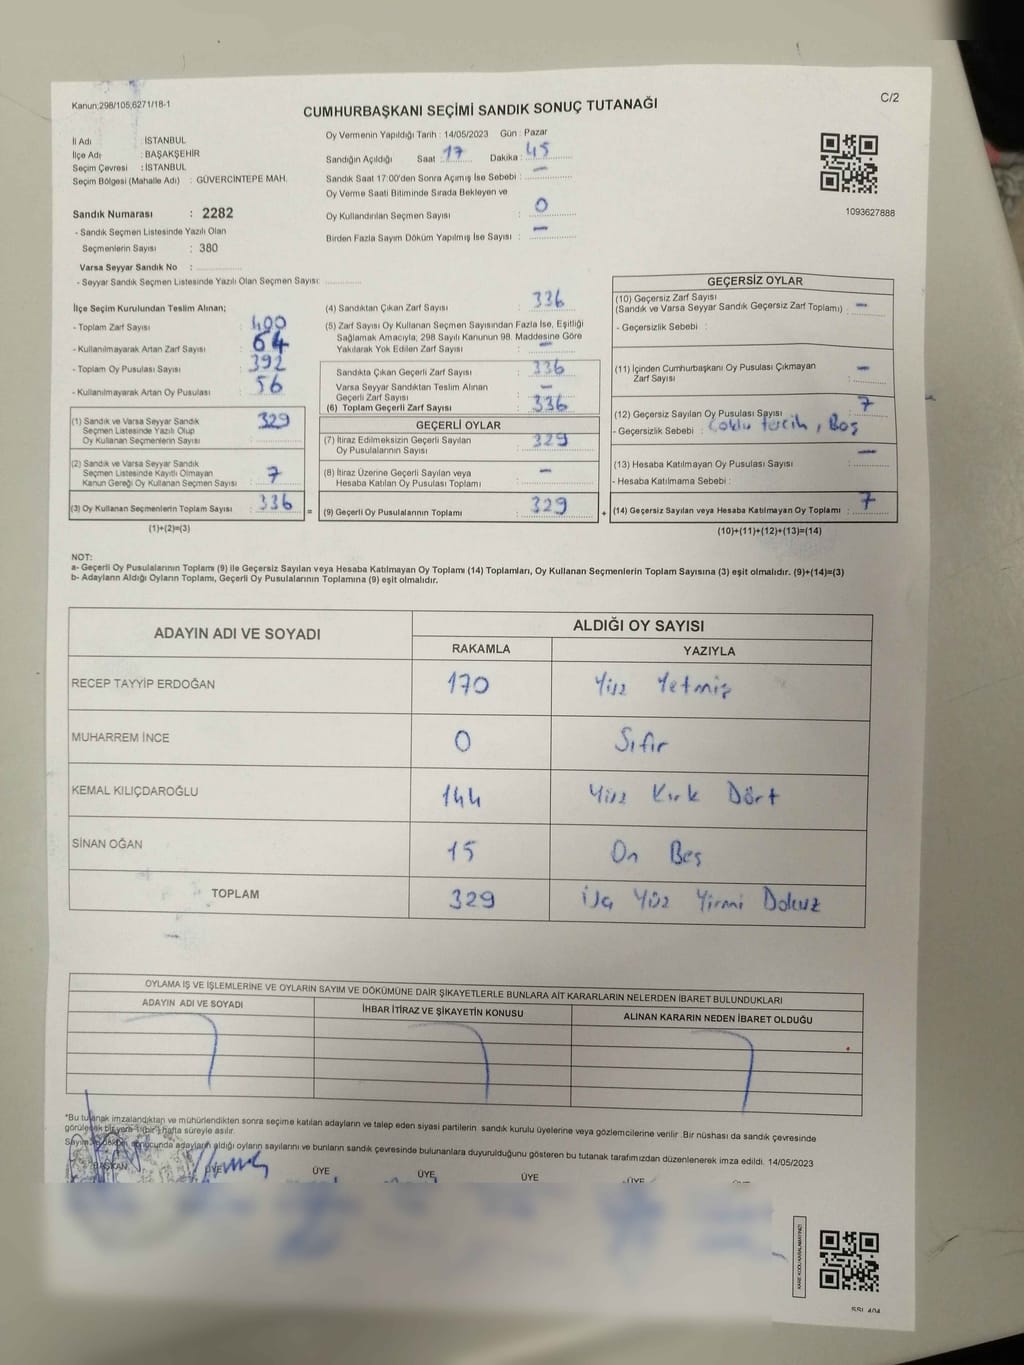 Kanun;298/105,6271/18-1
C/2
CUMHURBAŞKANI SEÇİMİ SANDIK SONUÇ TUTANAĞI
İl Adı : İSTANBUL
İlçe Adı : BAŞAKŞEHİR
Seçim Çevresi : İSTANBUL
Seçim Bölgesi (Mahalle Adı) : GÜVERCİNTEPE MAH.
Sandık Numarası : 2282
- Sandık Seçmen Listesinde Yazılı Olan
Seçmenlerin Sayısı : 380
Varsa Seyyar Sandık No :
- Seyyar Sandık Seçmen Listesinde Yazılı Olan Seçmen Sayısı:
Oy Vermenin Yapıldığı Tarih : 14/05/2023 Gün : Pazar
Sandığın Açıldığı Saat : 17 Dakika : 45
Sandık Saat 17:00'den Sonra Açımış İse Sebebi : —
Oy Verme Saati Bitiminde Sırada Bekleyen ve
Oy Kullandırılan Seçmen Sayısı : 0
Birden Fazla Sayım Döküm Yapılmış İse Sayısı : —
1093627888
İlçe Seçim Kurulundan Teslim Alınan;
- Toplam Zarf Sayısı : 400
- Kullanılmayarak Artan Zarf Sayısı : 64
- Toplam Oy Pusulası Sayısı : 392
- Kullanılmayarak Artan Oy Pusulası : 56
(1) Sandık ve Varsa Seyyar Sandık
Seçmen Listesinde Yazılı Olup
Oy Kullanan Seçmenlerin Sayısı : 329
(2) Sandık ve Varsa Seyyar Sandık
Seçmen Listesinde Kayıtlı Olmayan
Kanun Gereği Oy Kullanan Seçmen Sayısı : 7
(3) Oy Kullanan Seçmenlerin Toplam Sayısı : 336
(1)+(2)=(3)
(4) Sandıktan Çıkan Zarf Sayısı : 336
(5) Zarf Sayısı Oy Kullanan Seçmen Sayısından Fazla İse, Eşitliği
Sağlamak Amacıyla; 298 Sayılı Kanunun 98. Maddesine Göre
Yakılarak Yok Edilen Zarf Sayısı : —
Sandıkta Çıkan Geçerli Zarf Sayısı : 336
Varsa Seyyar Sandıktan Teslim Alınan
Geçerli Zarf Sayısı : —
(6) Toplam Geçerli Zarf Sayısı : 336
GEÇERLİ OYLAR
(7) İtiraz Edilmeksizin Geçerli Sayılan
Oy Pusulalarının Sayısı : 329
(8) İtiraz Üzerine Geçerli Sayılan veya
Hesaba Katılan Oy Pusulası Toplamı : —
= (9) Geçerli Oy Pusulalarının Toplamı : 329 +
GEÇERSİZ OYLAR
(10) Geçersiz Zarf Sayısı
(Sandık ve Varsa Seyyar Sandık Geçersiz Zarf Toplamı) : —
- Geçersizlik Sebebi :
(11) İçinden Cumhurbaşkanı Oy Pusulası Çıkmayan
Zarf Sayısı : —
(12) Geçersiz Sayılan Oy Pusulası Sayısı : 7
- Geçersizlik Sebebi : Çoklu tercih, Boş
(13) Hesaba Katılmayan Oy Pusulası Sayısı : —
- Hesaba Katılmama Sebebi :
(14) Geçersiz Sayılan veya Hesaba Katılmayan Oy Toplamı : 7
(10)+(11)+(12)+(13)=(14)
NOT:
a- Geçerli Oy Pusulalarının Toplamı (9) ile Geçersiz Sayılan veya Hesaba Katılmayan Oy Toplamı (14) Toplamları, Oy Kullanan Seçmenlerin Toplam Sayısına (3) eşit olmalıdır. (9)+(14)=(3)
b- Adayların Aldığı Oyların Toplamı, Geçerli Oy Pusulalarının Toplamına (9) eşit olmalıdır.
ADAYIN ADI VE SOYADI ALDIĞI OY SAYISI
RAKAMLA YAZIYLA
RECEP TAYYİP ERDOĞAN 170 Yüz Yetmiş
MUHARREM İNCE 0 Sıfır
KEMAL KILIÇDAROĞLU 144 Yüz Kırk Dört
SİNAN OĞAN 15 On Beş
TOPLAM 329 Üç Yüz Yirmi Dokuz
OYLAMA İŞ VE İŞLEMLERİNE VE OYLARIN SAYIM VE DÖKÜMÜNE DAİR ŞİKAYETLERLE BUNLARA AİT KARARLARIN NELERDEN İBARET BULUNDUKLARI
ADAYIN ADI VE SOYADI İHBAR İTİRAZ VE ŞİKAYETİN KONUSU ALINAN KARARIN NEDEN İBARET OLDUĞU
*Bu tutanak imzalandıktan ve mühürlendikten sonra seçime katılan adayların ve talep eden siyasi partilerin sandık kurulu üyelerine veya gözlemcilerine verilir .Bir nüshası da sandık çevresinde
görülecek bir yere 1(bir) hafta süreyle asılır.
adayların aldığı oyların sayılarını ve bunların sandık çevresinde bulunanlara duyurulduğunu gösteren bu tutanak tarafımızdan düzenlenerek imza edildi. 14/05/2023
BAŞKAN ÜYE ÜYE ÜYE ÜYE ÜYE